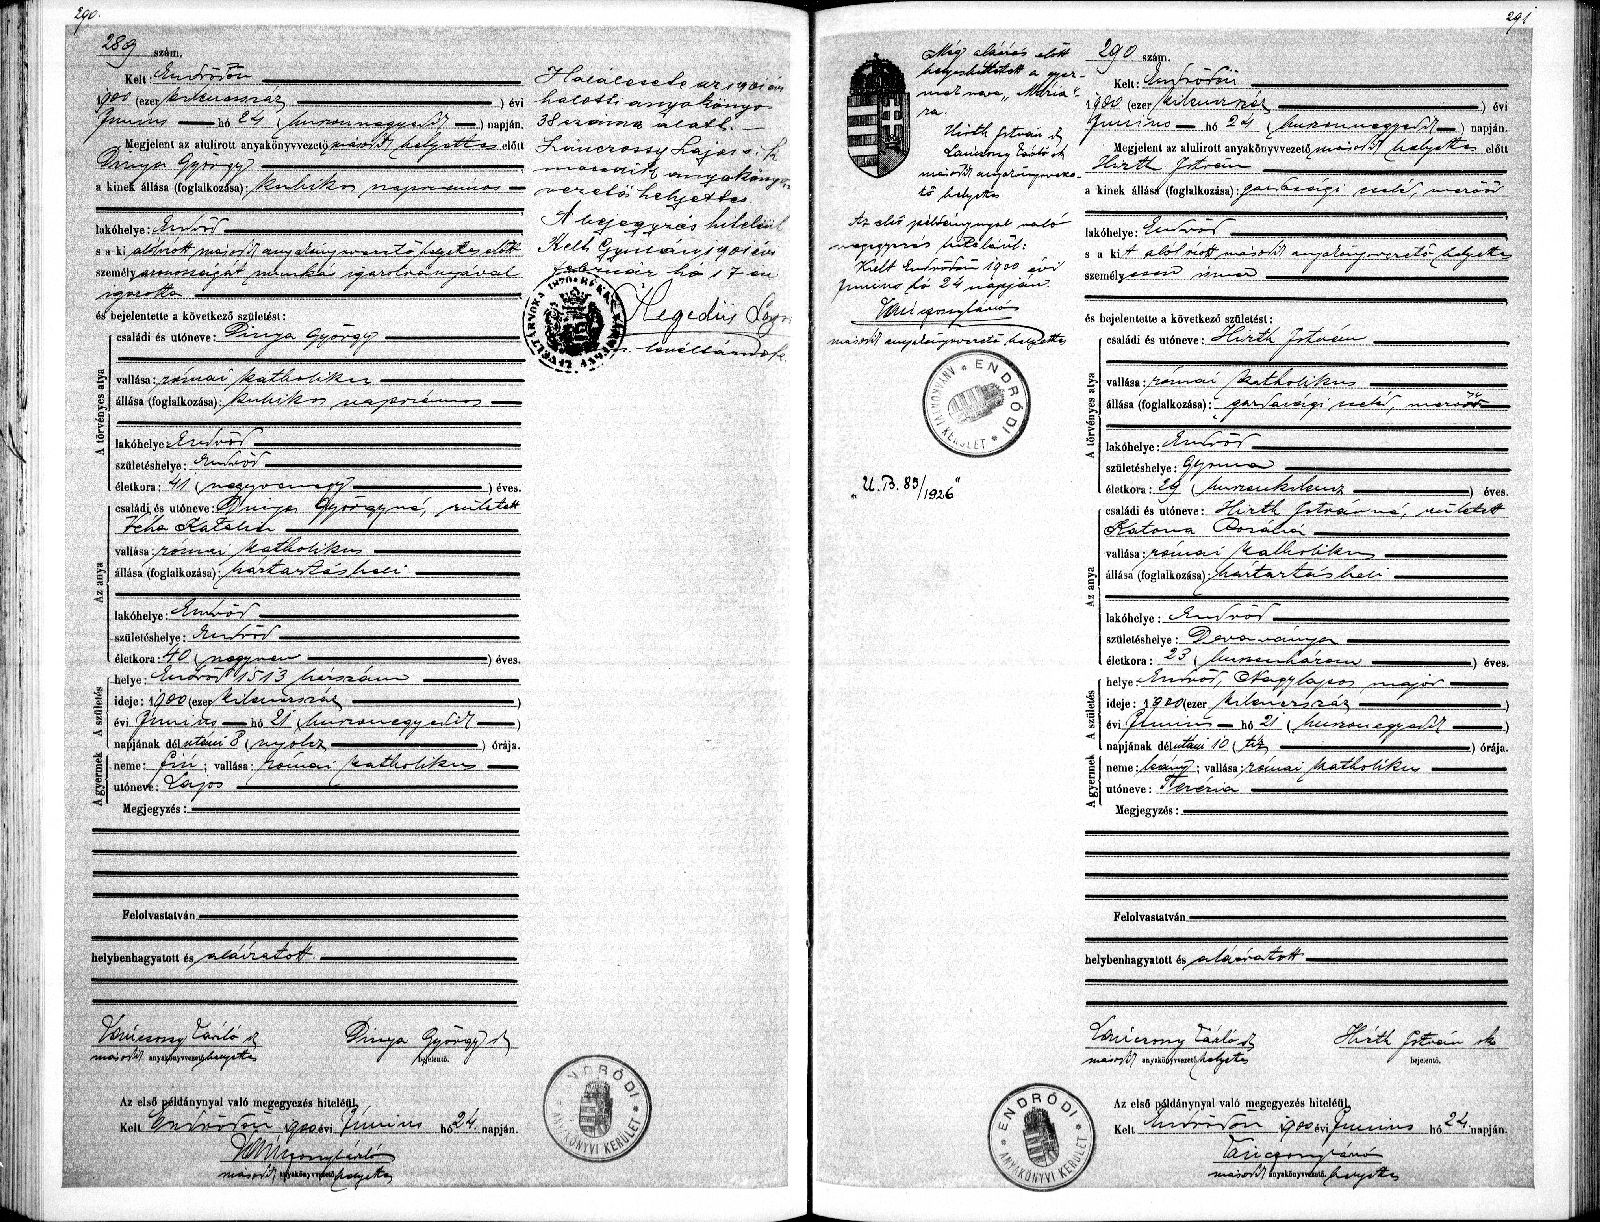 290.
289 szám.
Kelt: Endrődön
1900 (ezer kilencszáz) évi
Junius hó 24 (huszonnegyedik) napján.
Megjelent az alulirott anyakönyvvezető másodk helyettes előtt
Dinya György
a kinek állása (foglalkozása): kubikos napszámos
lakóhelye: Endrőd
s a ki alulirott másodk anyakönyvvezető helyettes előtt
személyazonosságát munkás igazolványával
igazolta
és bejelentette a következő születést:
A törvényes atya
családi és utóneve: Dinya György
vallása: római katholikus
állása (foglalkozása): kubikos napszámos
lakóhelye: Endrőd
születéshelye: Endrőd
életkora: 41 (negyvenegy) éves.
Az anya
családi és utóneve: Dinya Györgyné, született
Véha Katalin
vallása: római katholikus
állása (foglalkozása): háztartásbeli
lakóhelye: Endrőd
születéshelye: Endrőd
életkora: 40 (negyven) éves.
A születés
helye: Endrőd 1513 házszám
ideje: 1900 (ezer kilencszáz)
évi Junius hó 21 (huszonegyedik)
napjának délutáni 8 (nyolcz) órája.
A gyermek
neme: fiú; vallása: római katholikus
utóneve: Lajos
Megjegyzés:
Felolvastatván
helybenhagyatott és aláíratott
Láncsony László sk
másodk anyakönyvvezető helyettes
Dinya György sk
bejelentő.
Az első példánynyal való megegyezés hiteléül.
Kelt Endrődön 1900 évi Junius hó 24. napján.
másodk anyakönyvvezető helyettes
ENDRŐDI
ANYAKÖNYVI KERÜLET
Halálesete az 1901 évi
halotti anyakönyv
38 száma alatt.
Lajos s. k.
második anyakönyv
vezető helyettes
A bejegyzés hiteléül
Kelt Gyulán 1901 évi
február hó 17 én
Hegedüs Lajos
291
Még aláirás előtt
helyesbittetett a gyer-
mek neve „Mária"
ra.
Hirth István sk
másodk anyakönyvveze-
tő helyettes
Az első példánynyal való
megegyezés hiteléül:
Kelt Endrődön 1900 évi
Junius hó 24 napján.
másodk anyakönyvvezető helyettes
ENDRŐDI
ANYAKÖNYVI KERÜLET
„U.B. 83/1926"
290 szám.
Kelt: Endrődön
1900 (ezer kilencszáz) évi
Junius hó 24 (huszonnegyedik) napján.
Megjelent az alulirott anyakönyvvezető másodk helyettes előtt
Hirth István
a kinek állása (foglalkozása): gazdasági cseléd,
lakóhelye: Endrőd
s a kit alulirott másodk anyakönyvvezető helyettes
személyesen ismer
és bejelentette a következő születést:
A törvényes atya
családi és utóneve: Hirth István
vallása: római katholikus
állása (foglalkozása): gazdasági cseléd,
lakóhelye: Endrőd
születéshelye: Gyoma
életkora: 29 (huszonkilencz) éves.
Az anya
családi és utóneve: Hirth Istvánné, született
Katona Rozália
vallása: római katholikus
állása (foglalkozása): háztartásbeli
lakóhelye: Endrőd
születéshelye: Dévaványa
életkora: 23 (huszonhárom) éves.
A születés
helye: Endrőd, Nagylapos major
ideje: 1900 (ezer kilencszáz)
évi Junius hó 21 (huszonegyedik)
napjának délutáni 10 (tíz) órája.
A gyermek
neme: leány; vallása: római katholikus
utóneve: Terézia
Megjegyzés:
Felolvastatván
helybenhagyatott és aláíratott
Láncsony László sk
másodk anyakönyvvezető helyettes
Hirth István sk
bejelentő.
Az első példánynyal való megegyezés hiteléül.
Kelt Endrődön 1900 évi Junius hó 24. napján.
másodk anyakönyvvezető helyettes
ENDRŐDI
ANYAKÖNYVI KERÜLET